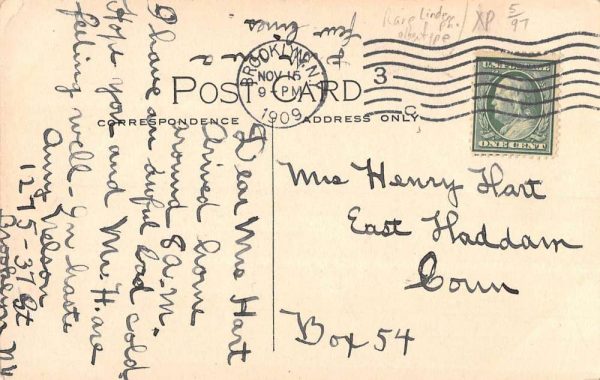 Rare
XP 5/97
few lines
BROOKLYN, N.Y.
NOV 15
9-PM
1909
3
C
U.S. POSTAGE
ONE CENT
POST CARD
CORRESPONDENCE
ADDRESS ONLY
Dear Mrs Hart
Arrived home
around 8 a.m.
I have an awful bad cold
Hope you and Mr. H. are
feeling well - In haste
Nelson
1275-37 St
Brooklyn NY
Mrs Henry Hart
East Haddam
Conn
Box 54